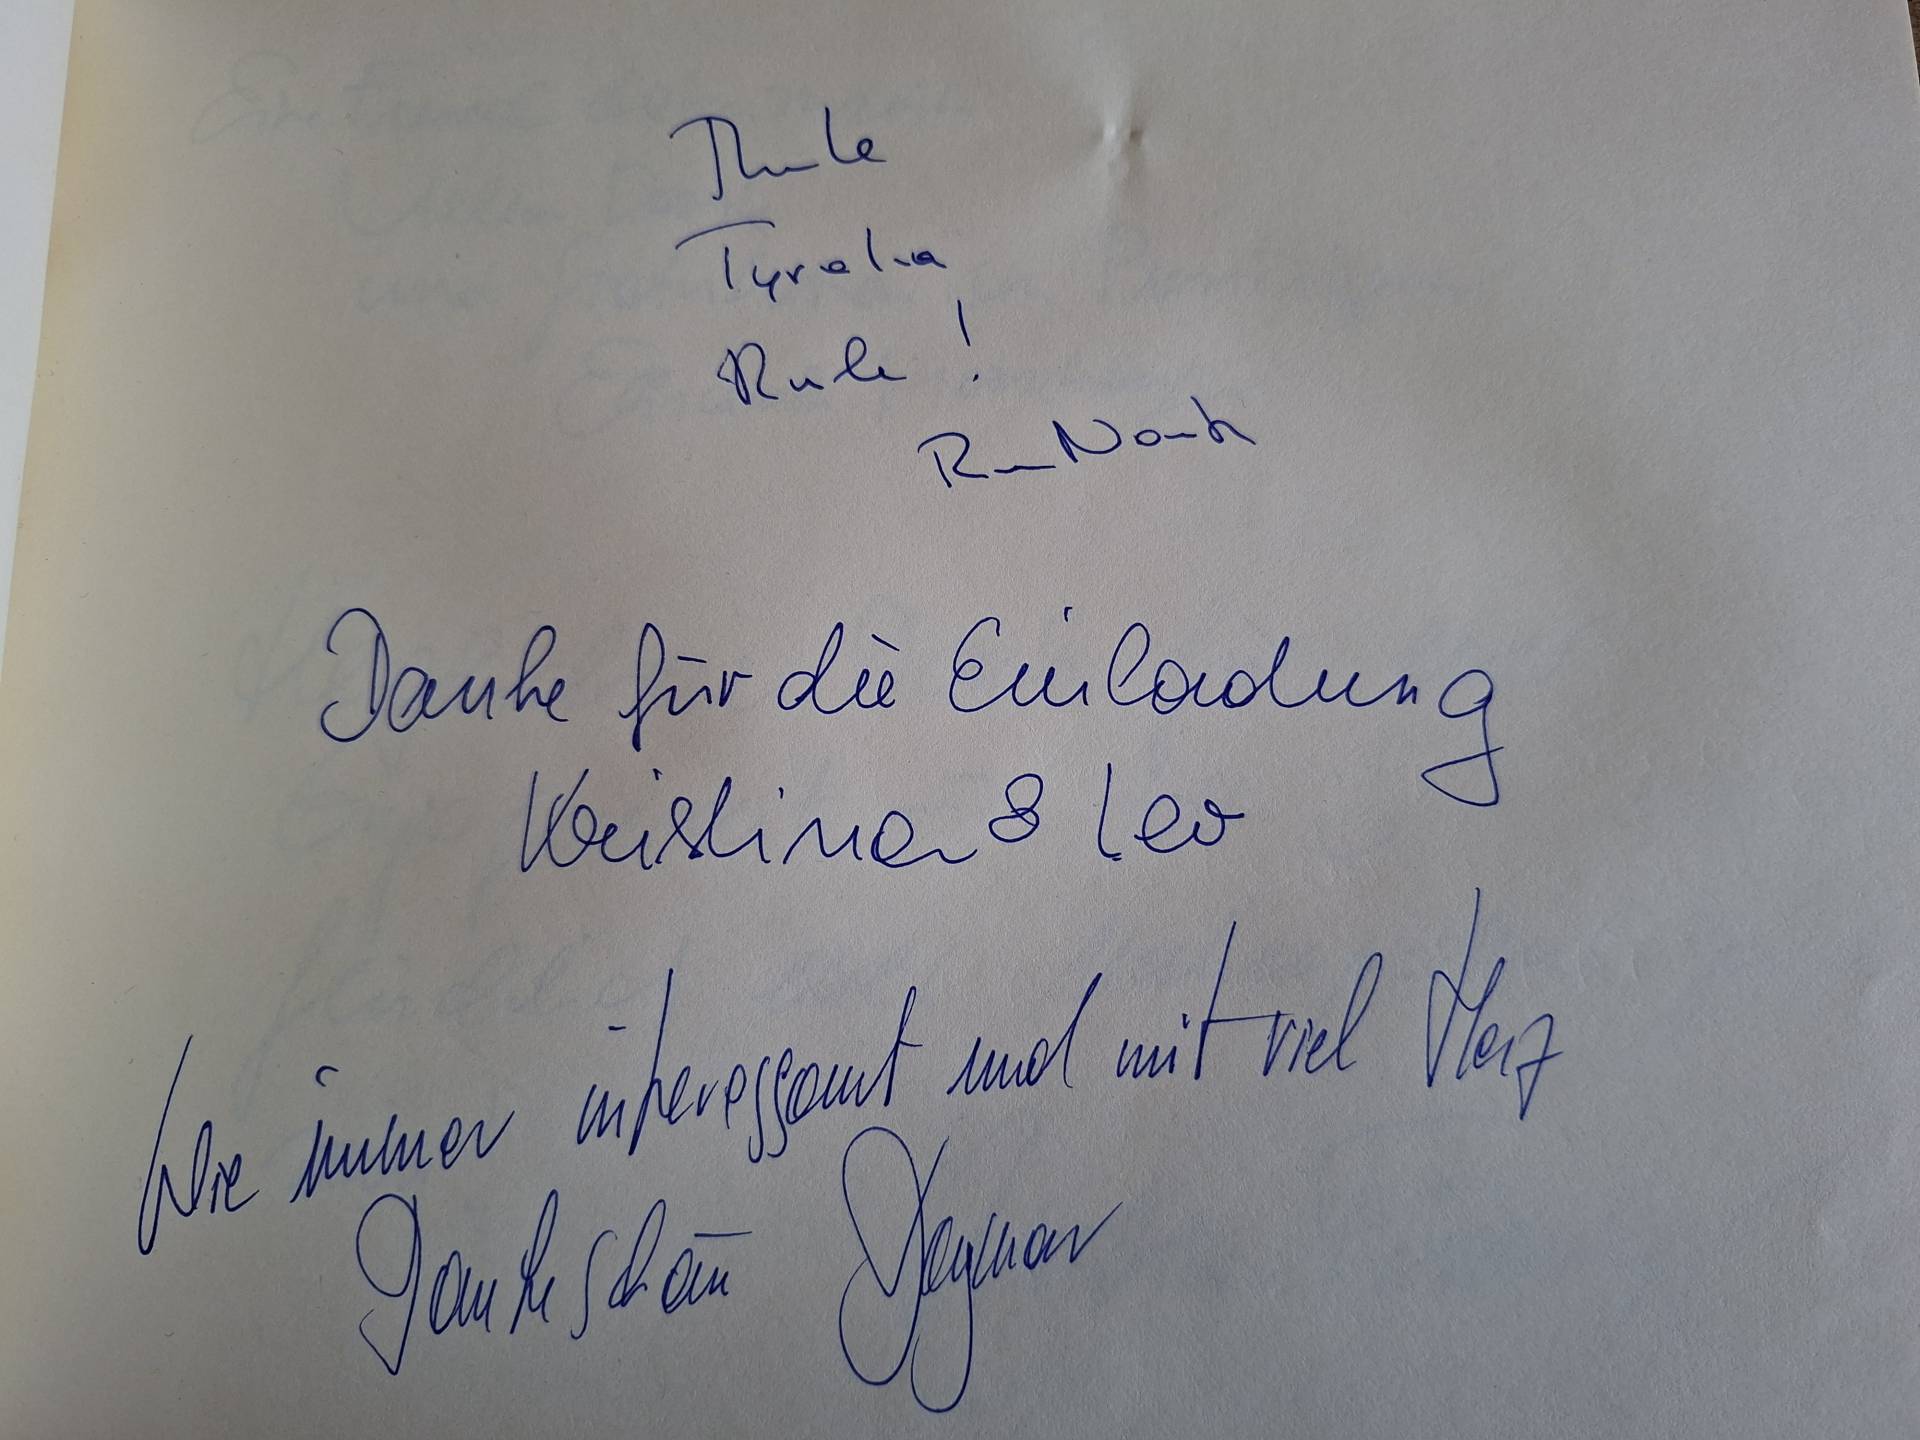 Thule
Tyrolia
Rule!
Danke für die Einladung
Kristina & Leo
Wie immer interessant und mit viel Herz
Dankeschön Dagmar